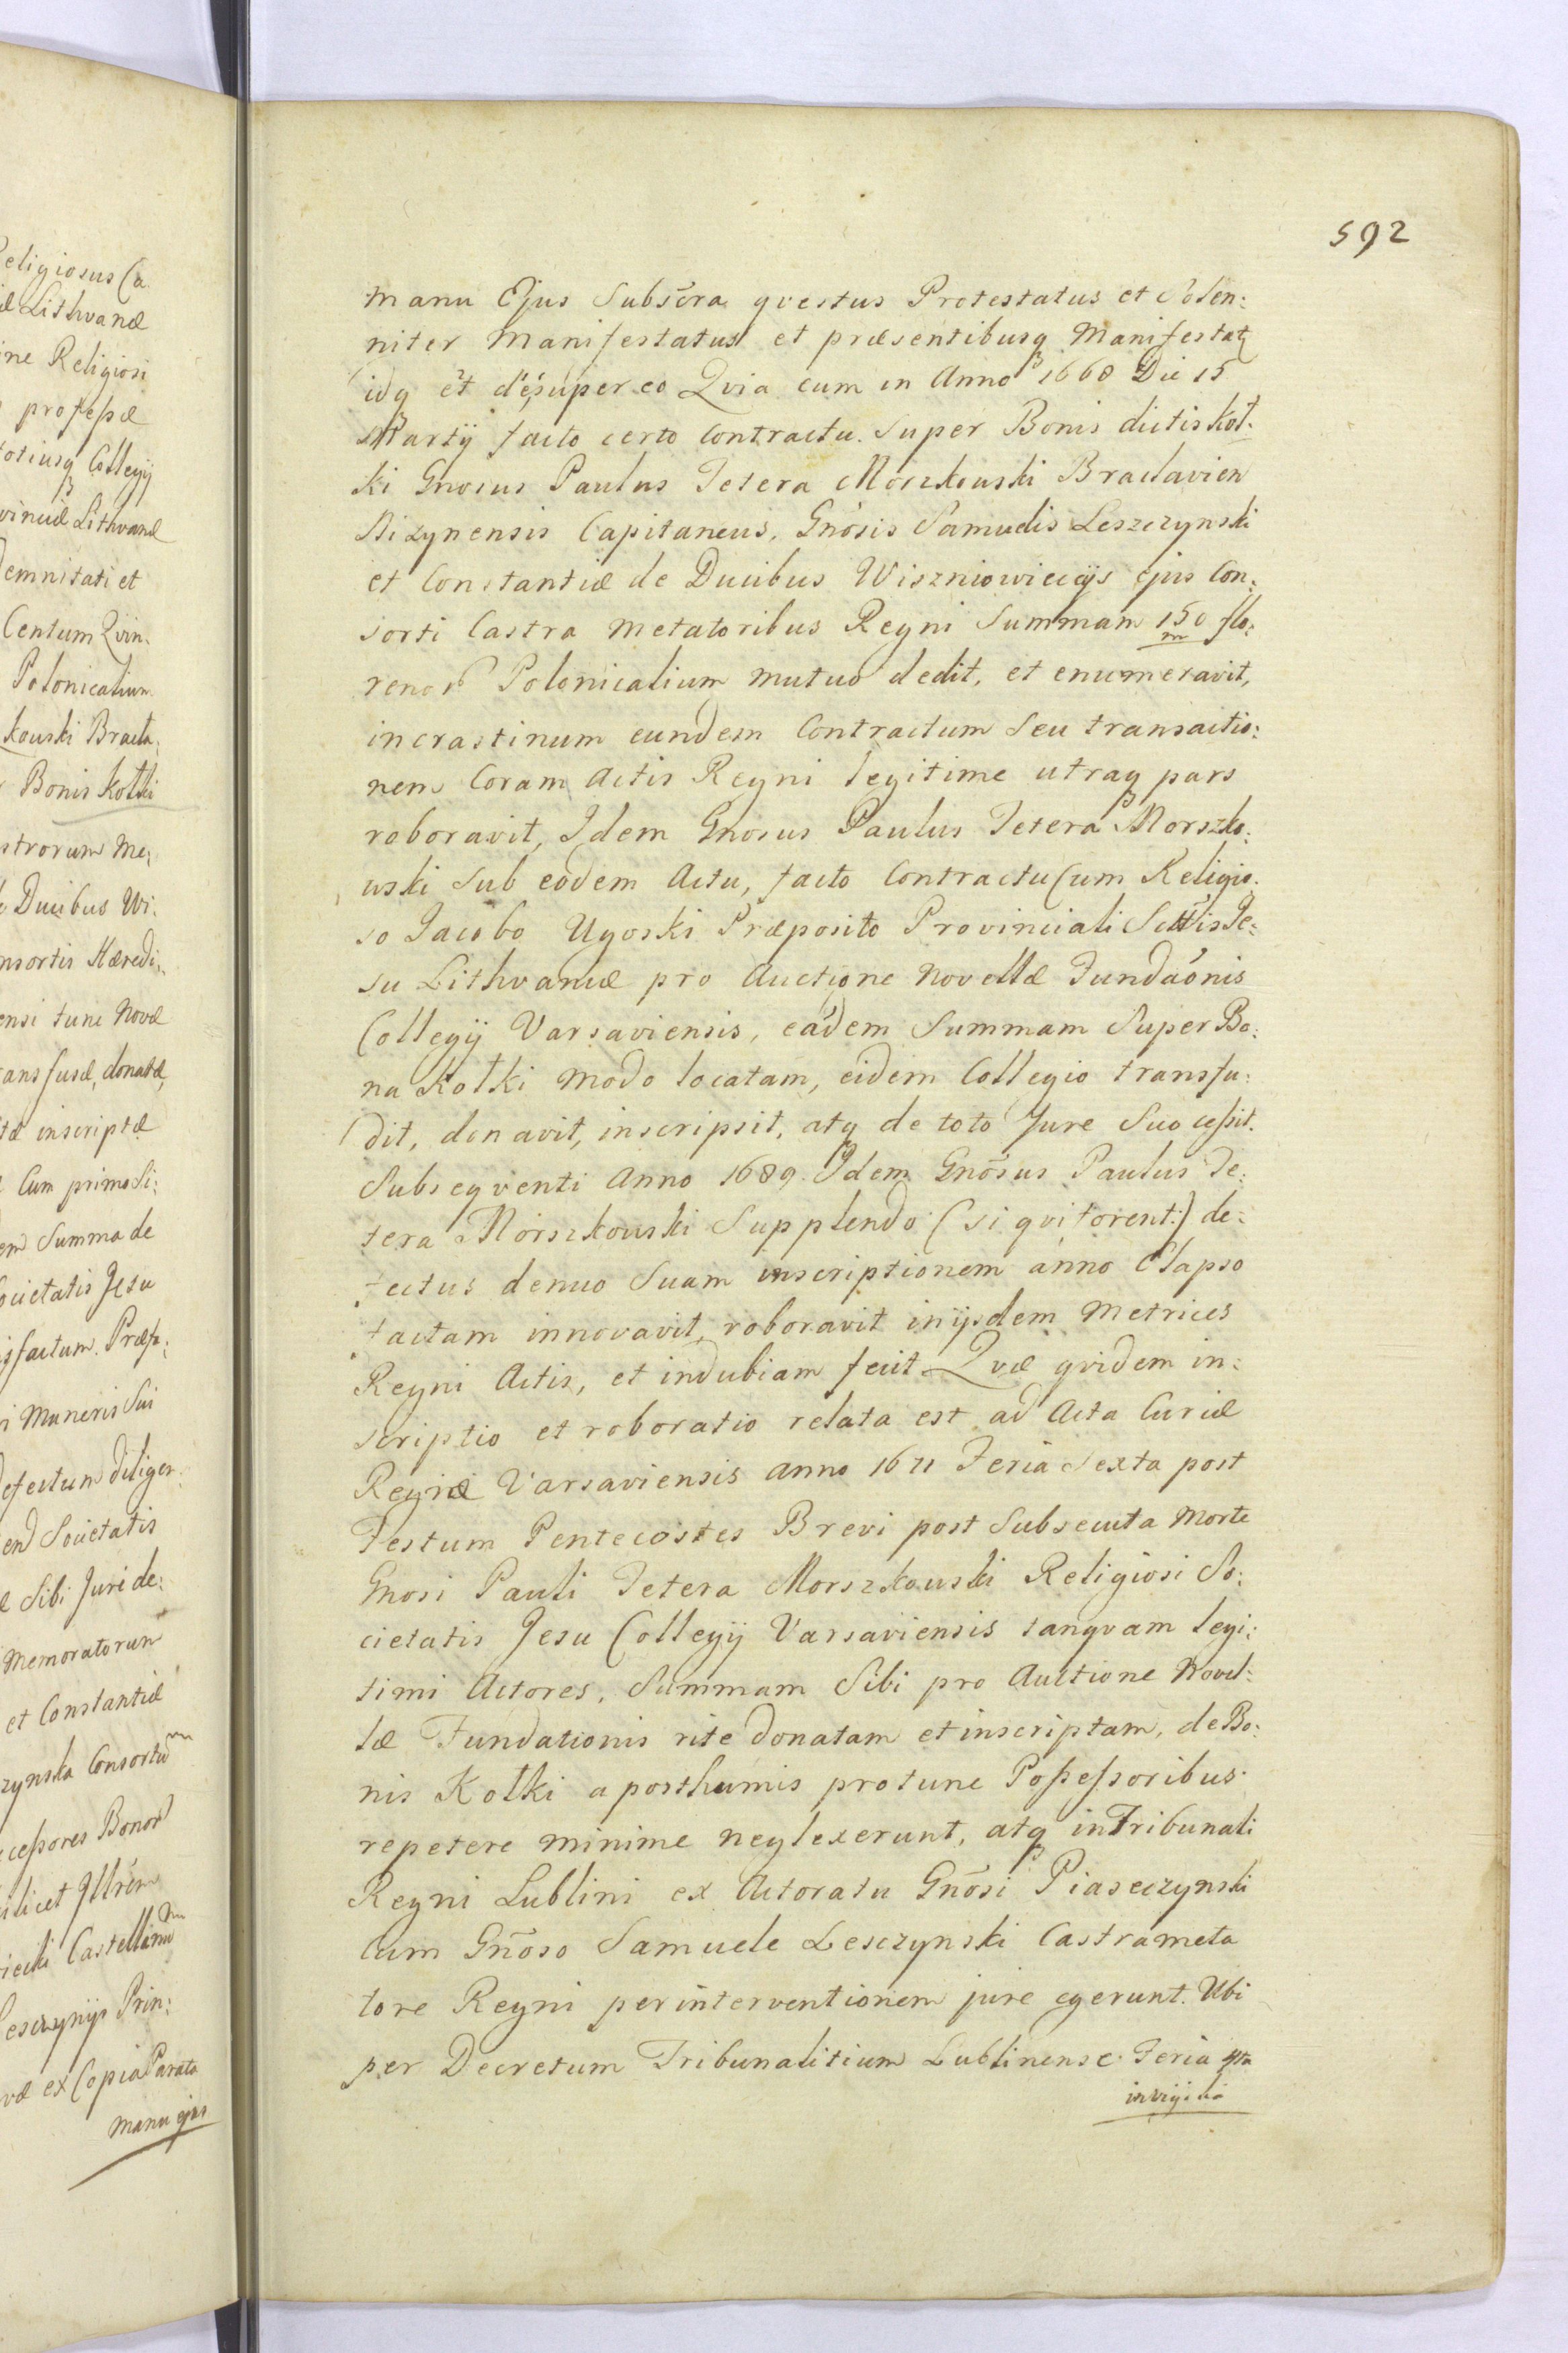 eligiosus Ca
æ Lithvanæ
ine Religiosi
profeßæ
totiusq Collegij
vinciæ Lithvanæ
demnitati et
Centum Qvin:
Polonicalium
kouski Bracla:
Bonis Kotki
strorum Me:
Ducibus Wi:
nsortis Hæredi:
ensi tunc Novæ
ansfusæ, donatæ,
tæ inscriptæ
Cum primo Si:
em Summa de
ocietatis Jesu
isfactum. Præfa:
i Muneris Sui
efectum diligen:
end Societatis
e Sibi Juri de:
Memoratorum
et Constantiæ
zynska Consortū
cceßores Bonor
ilicet Illrēm
iecki Castellanū
Lesczynijs Prin:
væ ex Copia Parata
manu ejus
592
manu Ejus Subscra qvestus Protestatus et Solen:
niter Manifestatus et præsentibusq Manifestatq
idq et desuper eo Qvia cum in Anno 1668 Die 15
Martij facto certo Contractu Super Bonis dictis Kot:
ki Gnosus Paulus Tetera Morszkouski Braclavien
Nizynensis Capitaneus, Gnosis Samuelis Leszczynski
et Constantiæ de Ducibus Wiszniowieccijs ejus Con:
sorti Castra Metatoribus Regni Summam 150 flo:
m
renor Polonicalium mutuo dedit, et enumeravit,
incrastinum eundem Contractum Seu transactio:
nem Coram Actis Regni legitime utraq pars
roboravit, Idem Gnosus Paulus Tetera Morszko:
uski Sub eodem Actu, facto Contractu Cum Religio:
so Jacobo Ugoski Præposito Provinciali Scttis Je:
su Lithvaniæ pro Auctione Novellæ Fundaonis
Collegij Varsaviensis, eadem Summam Super Bo:
na Kotki modo locatam, eidem Collegio transfu:
dit, donavit, inscripsit, atq de toto Jure Suo ceßit.
Subseqventi Anno 1689. Idem Gnōsus Paulus Te:
tera Morszkouski Supplendo (si qvi forent:) de:
fectus denuo Suam inscriptionem anno Elapso
factam innovavit, roboravit inijsdem Metrices
Regni Actis, et indubiam fecit. Qvæ qvidem in:
scriptio et roboratio relata est ad Acta Curiæ
Regiæ Varsaviensis Anno 1671 Feria Sexta post
Festum Pentecostes Brevi post Subsecuta Morte
Gnosi Pauli Tetera Morszkouski Religiosi So:
cietatis Jesu Collegij Varsaviensis tanqvam legi:
timi Actores, Summam Sibi pro Auctione Novel:
læ Fundationis rite donatam et inscriptam, de Bo:
nis Kotki a posthumis protunc Poßeßoribus
repetere minime neglexerunt, atq in Tribunali
Regni Lublini ex Actoratu Gnōsi Piaseczynski
Cum Gnōso Samuele Lesczynski Castrameta
tore Regni per interventionem jure egerunt. Ubi
per Decretum Tribunalitium Lublinense Feria 4ta
in vigilia